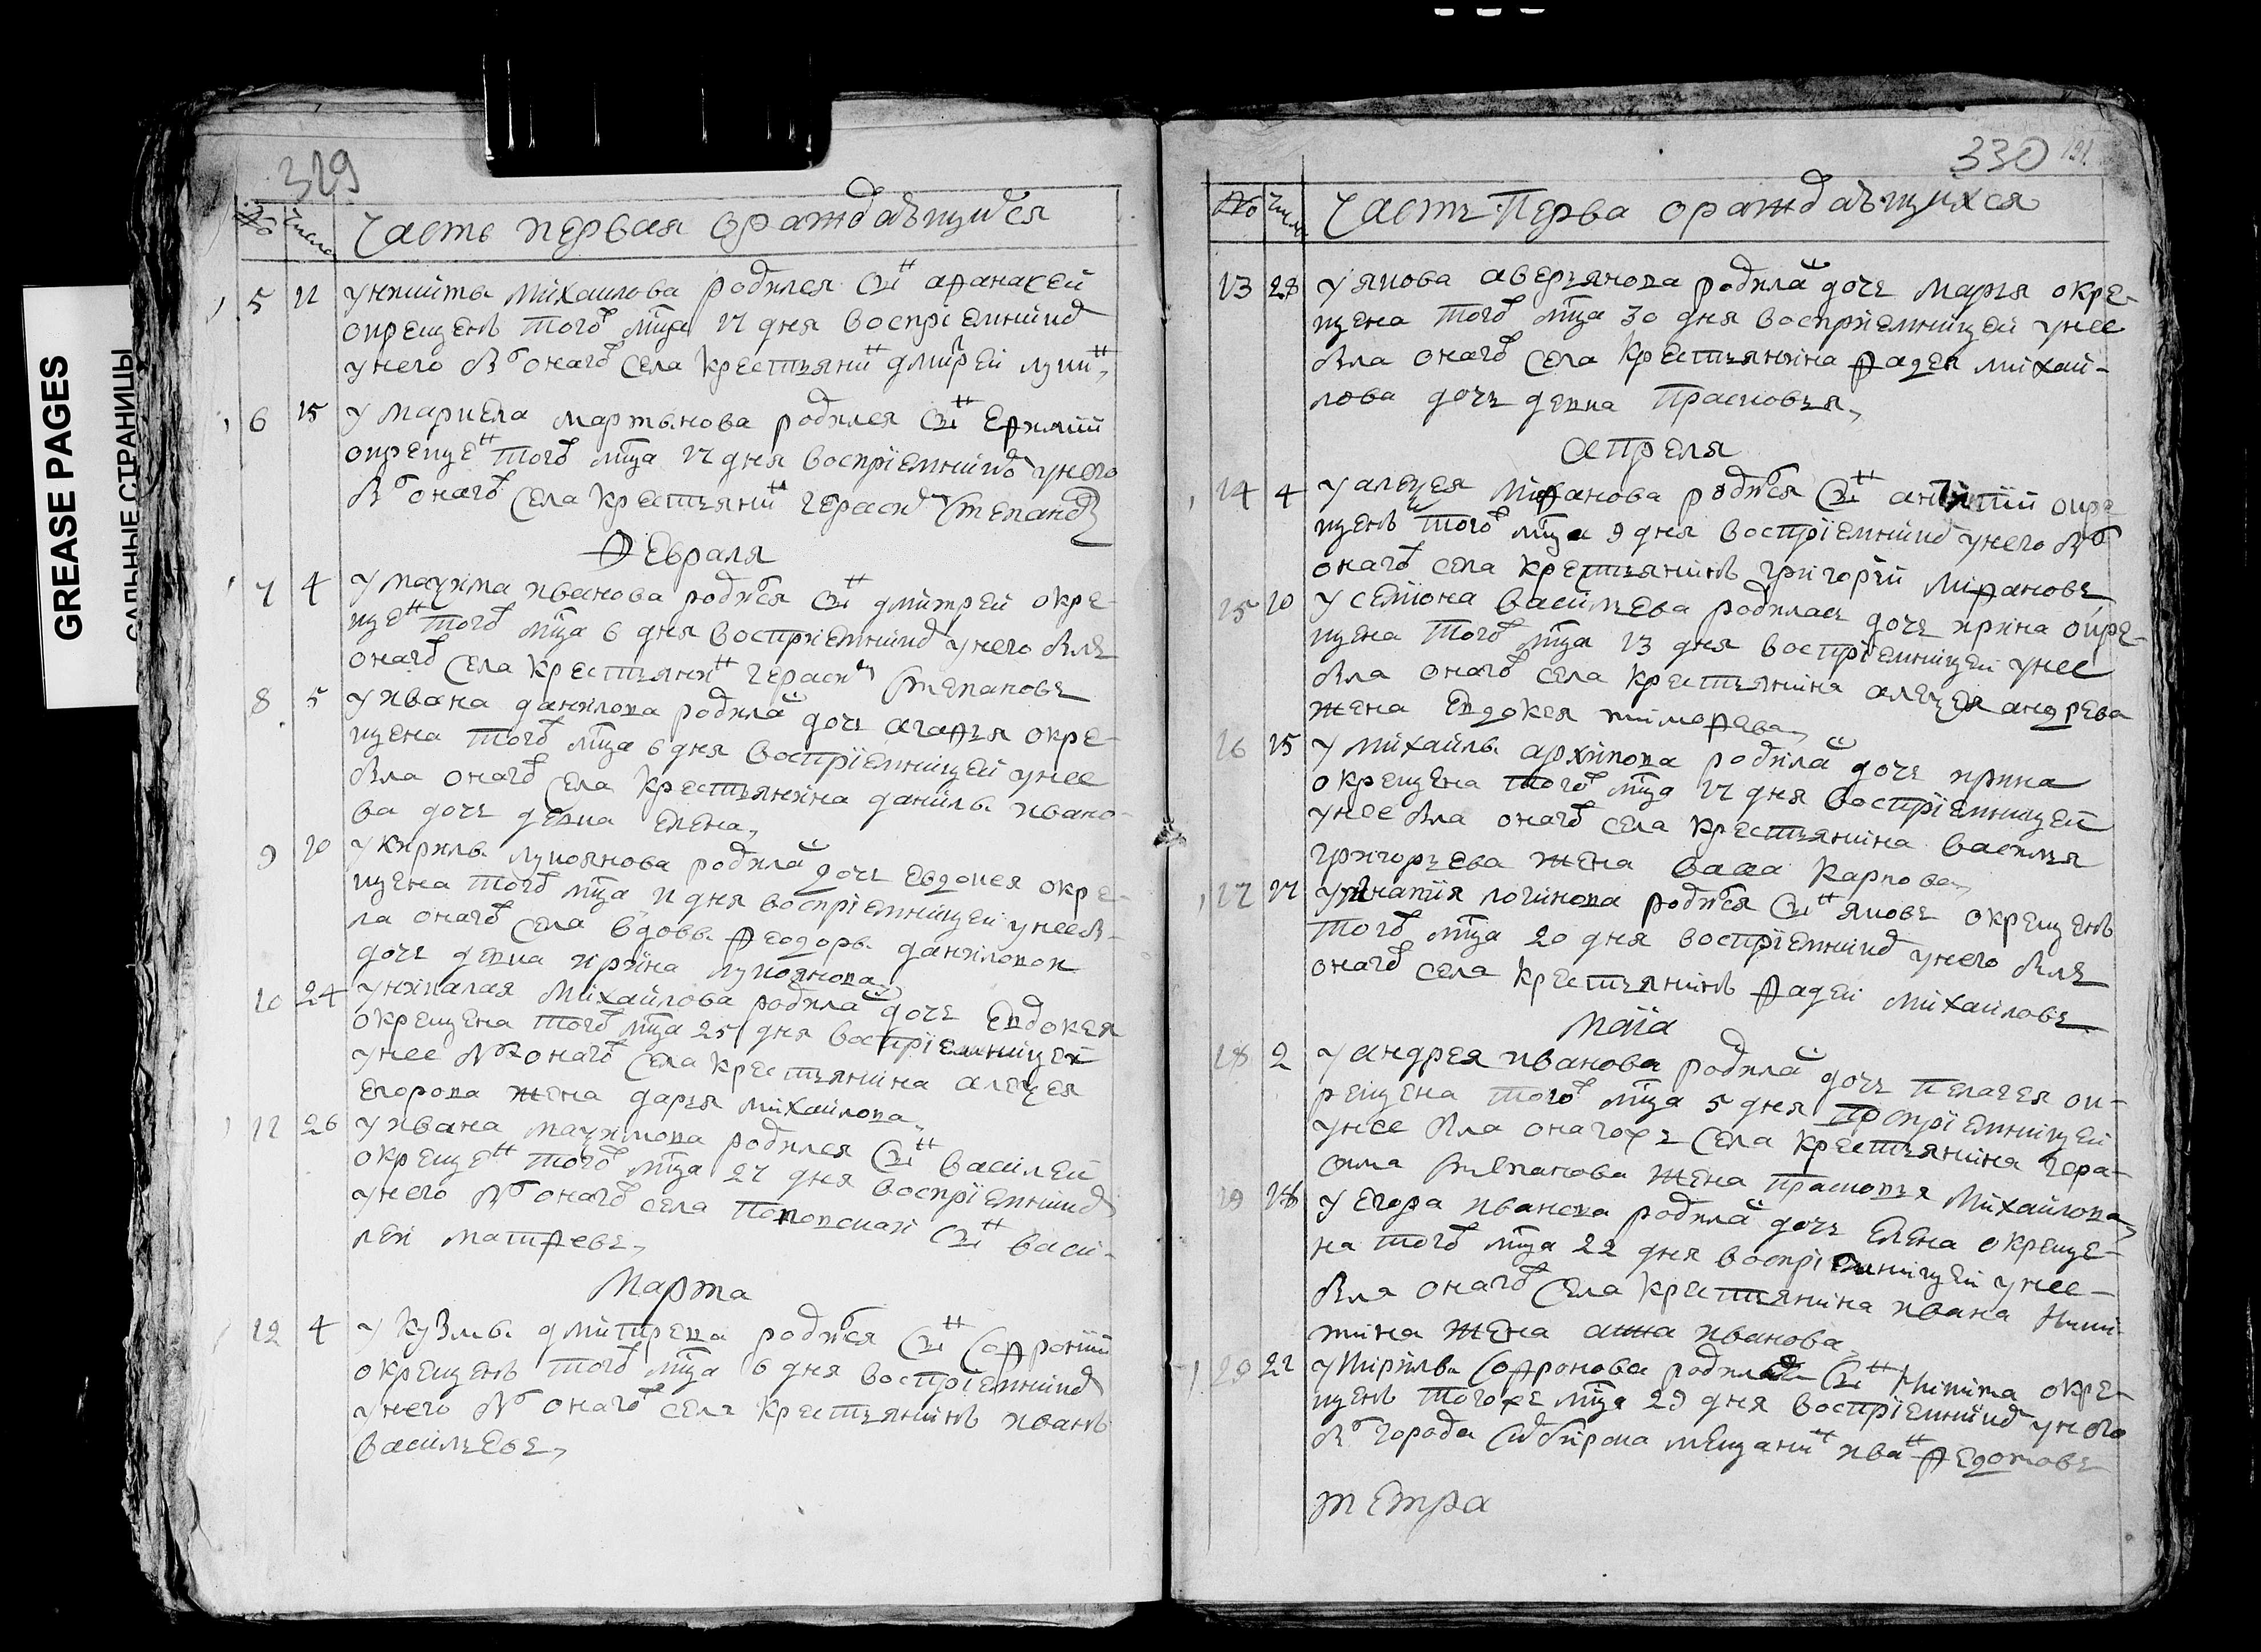 GREASE PAGES
САЛЬНЫЕ СТРАНИЦЫ
329
№ Число Часть первая ораждаѣщихся
5 11 У Никиты Михаилова родился снъ Афанасей
окрещенъ того мца 17 дня воспрiемникъ
у него былъ онаго села крестьянинъ Дмитрей Лукин,
6 15 У Маркела Мартынова родился снъ Ефимiй
окрещенъ того мца 17 дня воспрiемникъ у него
былъ онаго села крестьянинъ Герасимъ Степановъ
Февраля
7 4 У Маѯима Иванова родися снъ Дмитрей окре-
щенъ того мца 6 дня воспрiемникъ у него былъ
онаго села крестьянинъ Герасимъ Степановъ
8 5 У Ивана Данилова родила дочь Агафья окре-
щена того мца 6 дня воспрiемницей у нее
была онаго села крестьянина Данилы Ивано-
ва дочь девка Елена,
9 10 У Кирилы Лукоянова родила дочь Евдокея окре-
щена того мца 11 дня воспрiемницей у нее бы-
ла онаго села вдовы Феодоры Даниловой
дочь девка Ирина Лукоянова,
10 24 У Николая Михайлова родила дочь Евдокея
окрещена того мца 25 дня воспрiемницей
у нее была онаго села крестьянина Алеѯея
Егорова жена Дарья Михайлова,
11 26 У Ивана Маѯимова родился снъ Василей
окрещенъ того мца 27 дня воспрiемникъ
у него былъ онаго села поповскай снъ Васи-
лей Матфеевъ,
Марта
12 4 У Кузмы Дмитрева родися снъ Софронiй
окрещенъ того мца 6 дня воспрiемникъ
у него былъ онаго села крестьянинъ Иванъ
Васильевъ,
330 191
№ Число Часть Перва ораждаѣщихся
13 28 У Якова Аверьянова родила дочь Марья окре-
щена того мца 30 дня воспрiемницей у нее
была онаго села крестьянина Фадея Михай-
лова дочь девка Прасковья,
Апреля
14 4 У Алеѯея Мифанова родися снъ Антипiй окре
щенъ того мца 9 дня воспрiемникъ у него былъ
онаго села крестьянинъ Григорiй Мифановъ
15 10 У Семiона Васильева родилась дочь Ирина окре-
щена того мца 13 дня воспрiемницей у нее
была онаго села крестьянина Алеѯея Андрева
жена Евдокея Тимофева,
16 15 У Михайлы Архипова родила дочь Ирина
окрещена того мца 17 дня воспрiемницей
у нее была онаго села крестьянина Василья
Григорьева жена Васа Карпова,
17 17 У Игнатiя Логинова родися снъ Яковъ окрещенъ
того мца 20 дня воспрiемникъ у него былъ
онаго села крестьянинъ Фадей Михаиловъ
Маiа
18 2 У Андрея Иванова родила дочь Пелагея ок-
рещена того мца 5 дня воспрiемницей
у нее была онагожъ села крестьянина Гера-
сима Степанова жена Прасковья Михайлова,
19 18 У Егора Иванова родила дочь Елена окреще-
на того мца 22 дня воспрiемницей у нее
была онаго села крестьянина Ивана Ники-
тина жена Анна Иванова,
20 22 У Кирилы Софронова родился снъ Никита окре-
щенъ тогоже мца 29 дня воспрiемникъ у него
былъ города Симбирска мещанинъ Иванъ Федотовъ
Петра